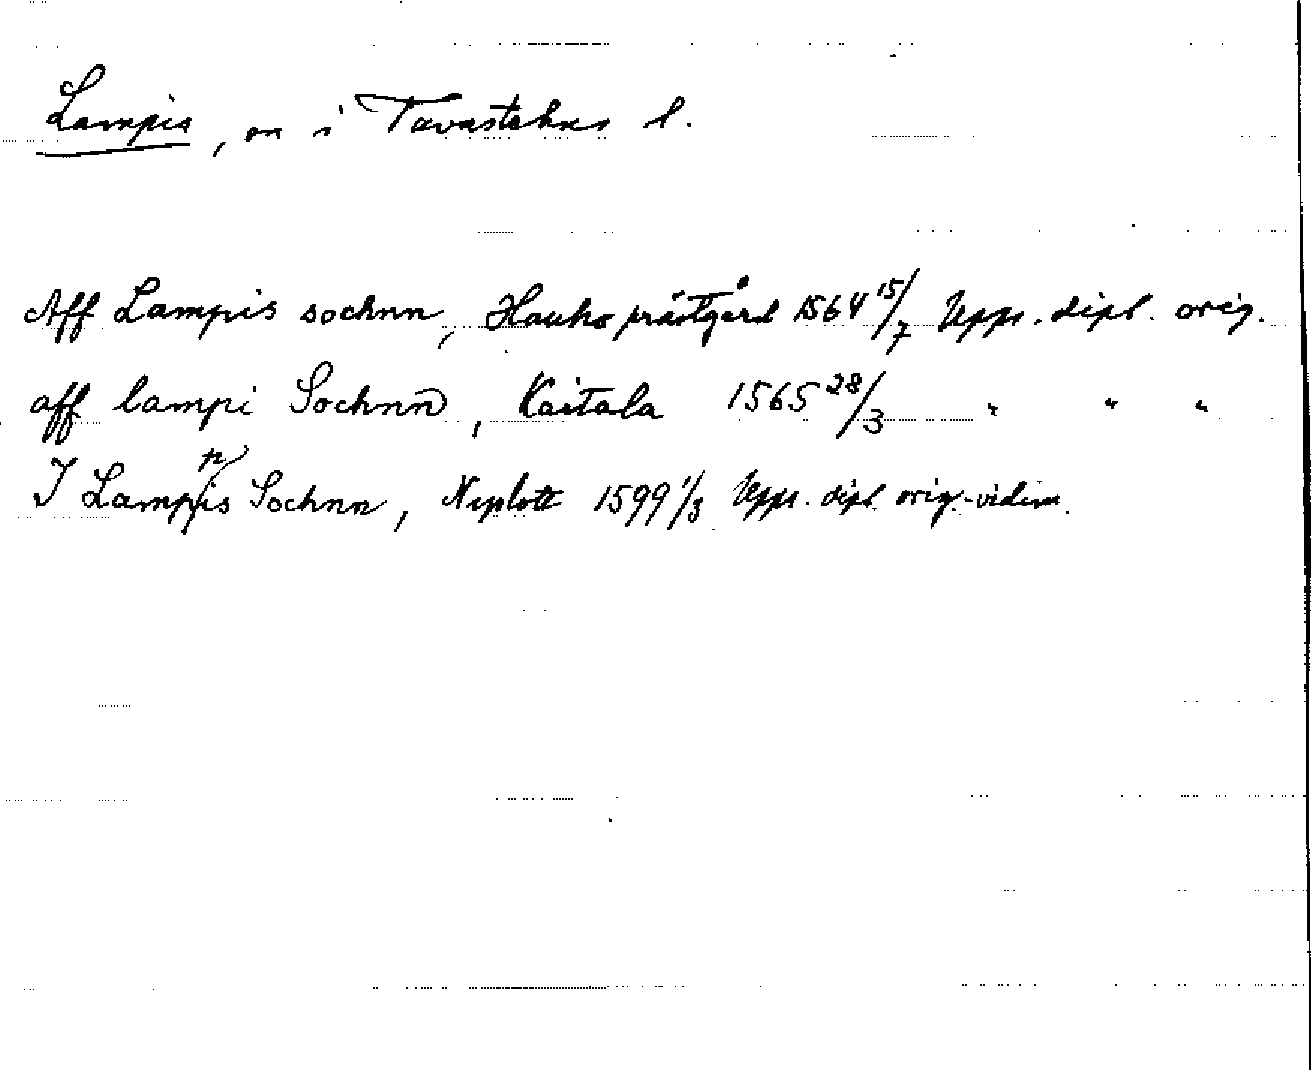 Lampis, sn i Tavastehus l.
Aff Lampis sochnn, Hauho prästgård 1564 15/7 Upps. dipl. orig.
aff lampi Sochnn̄, Kaitala 1565 28/3 " " "
I Lampis Sochnn, Neplott 1599 1/3 Upps. dipl orig.-vidim.